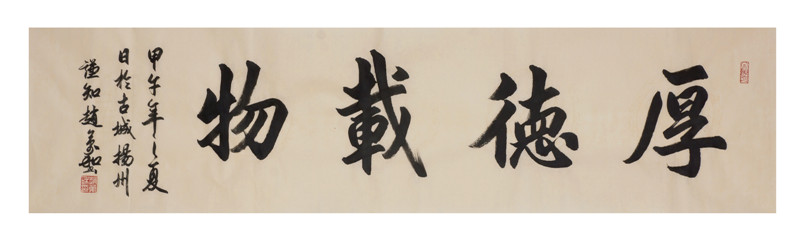 厚德載物
甲午年之夏
日於古城揚州
知趙